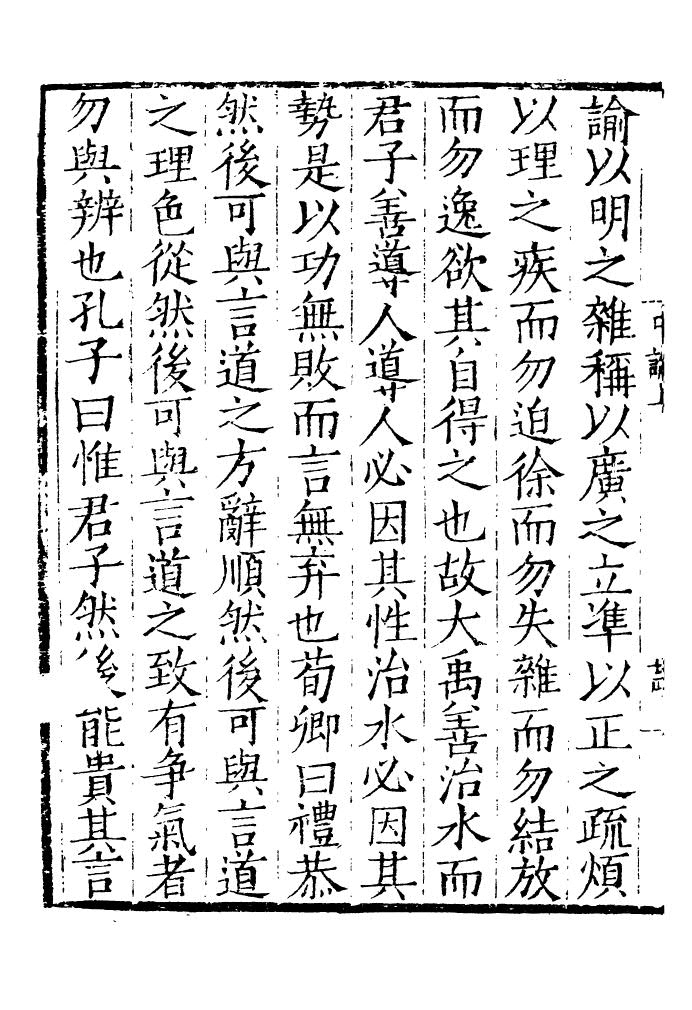 諭以明之雜稱以廣之立準以正之疏煩
以理之疾而勿迫徐而勿失雜而勿結放
而勿逸欲其自得之也故大禹善治水而
君子善導人導人必因其性治水必因其
勢是以功無敗而言無弃也荀卿曰禮恭
然後可與言道之方辭順然後可與言道
之理色從然後可與言道之致有争氣者
勿與辨也孔子曰惟君子然後能貴其言